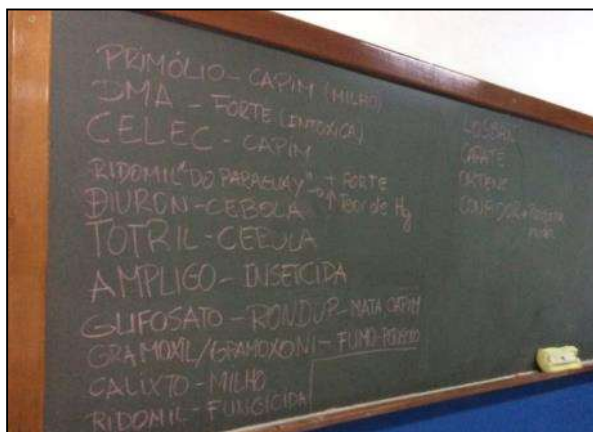 PRIMÓLIO - CAPIM (MILHO)
DMA - FORTE (INTOXICA)
CELEC - CAPIM
RIDOMIL "DO PARAGUAY" → + FORTE
↑ Teor de Hg
DIURON - CEBOLA
TOTRIL - CEBULA
AMPLIGO - INSETICIDA
GLIFOSATO - RONDUP - MATA CAPIM
GRAMOXIL/GRAMOXONI - FUMO-
CALIXTO - MILHO
RIDOMIL - FUNGICIDA
ORTENE
CONFIDOR